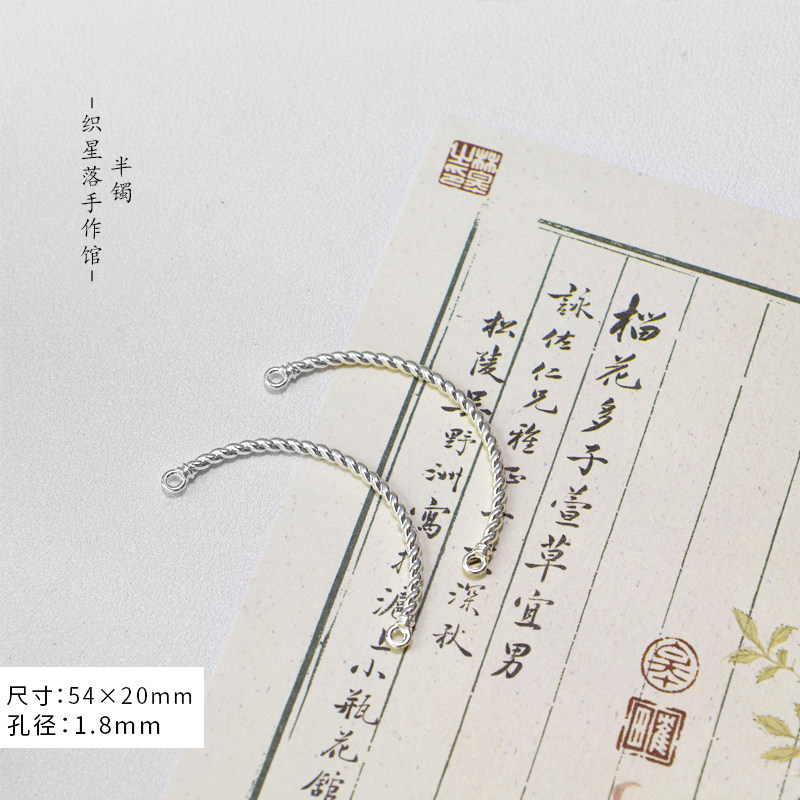 半镯
-织星落手作馆-
榴花多子萱草宜男
詠佐仁兄雅正
深秋
松陵吴野洲寓
滬上小瓶花館
尺寸：54×20mm
孔径：1.8mm